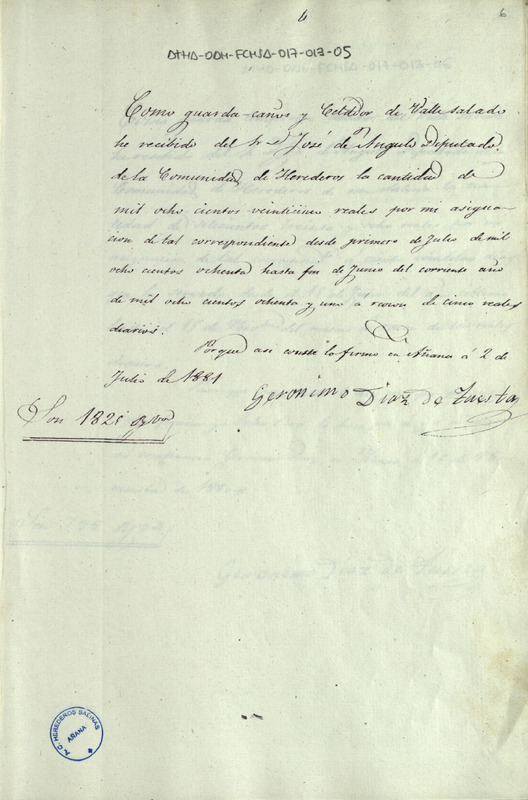 6
6
ATHA-DAH-FCHSA-017-013-05
Como guarda-caños y Celador de Valle salado
he recibido del Sr. José de Angulo Diputado
de la Comunidad de Herederos la cantidad de
mil ocho cientos veinticinco reales por mi asigna-
cion de tal correspondiente desde primero de Julio de mil
ocho cientos ochenta hasta fin de Junio del corriente año
de mil ocho cientos ochenta y uno a razon de cinco reales
diarios.
Porque asi conste lo firmo en Añana á 2 de
Julio de 1881
Geronimo Diaz de Tuesta
Son 1825 rs vn
A.C. HEREDEROS SALINAS
AÑANA